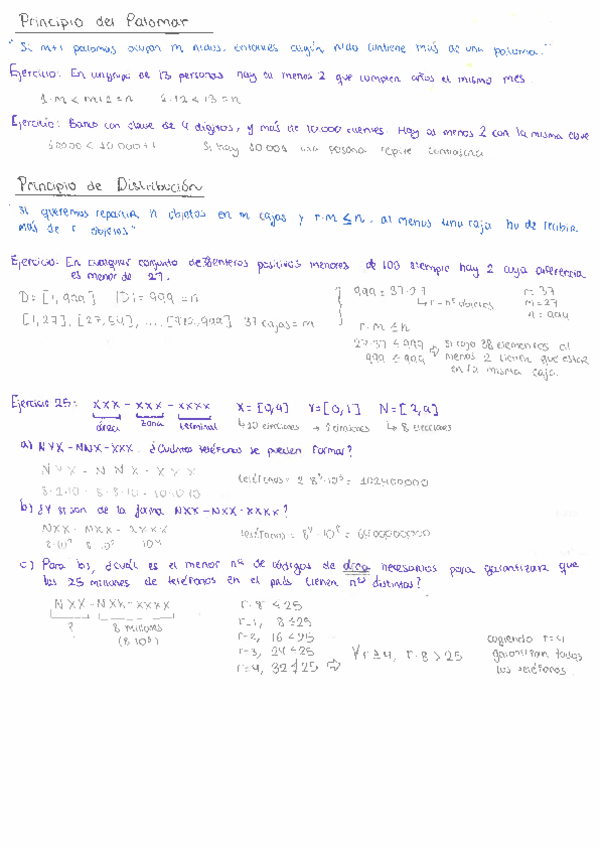 Principio del Palomar
"Si m+1 palomas ocupan m nidos, entonces algún nido contiene más de una paloma."
Ejercicio: En un grupo de 13 personas hay al menos 2 que cumplen años el mismo mes.
1·m < m+1 = n 1·12 < 13 = n
Ejercicio: Banco con clave de 4 dígitos, y más de 10.000 clientes. Hay al menos 2 con la misma clave
10000 < 10000+1 Si hay 10001 una persona repite contraseña
Principio de Distribución
"Si queremos repartir n objetos en m cajas y r·m ≤ n, al menos una caja ha de recibir
más de r objetos"
Ejercicio: En cualquier conjunto de enteros positivos menores de siempre hay 2 cuya diferencia
es menor de 27.
D = [1, 999] |D| = 999 = n
[1,27], [27,54], ... , 999] 37 cajas = m
999 = 37·27
↳ r - nº objetos
r·m ≤ n
27·37 ≤ 999
999 ≤ 999
⇒ si cojo 38 elementos al
menos 2 tienen que estar
en la misma caja.
r = 37
m = 27
n = 999
Ejercicio 25: XXX - XXX - XXXX X = [0,9] Y = [0,1] N = [2,9]
área zona terminal ↳ 10 elecciones → 2 elecciones ↳ 8 elecciones
a) NYX - NNX - XXX. ¿Cuántos teléfonos se pueden formar?
NYX - NNX - XXX
8·2·10 - 8·8·10 - 10·10·10
teléfonos = 2·8³·10⁵ = 102400000
b) ¿Y si son de la forma NXX - NXX - XXXX?
NXX - NXX - XXXX
8·10² 8·10² 10⁴
teléfonos = 8² · 10⁸ = 6400000000
c) Para b), ¿cuál es el menor nº de códigos de área necesarios para garantizar que
los 25 millones de teléfonos en el país tienen nº distintos?
NXX - NXX - XXXX
? 8 millones
(8·10⁶)
r·8 ≤ 25
r=1, 8 ≤ 25
r=2, 16 ≤ 25
r=3, 24 ≤ 25
r=4, 32 ≰ 25 ⇒ ∀ r ≥ 4, r·8 > 25
cogiendo r=4
garantizan todos
los teléfonos.